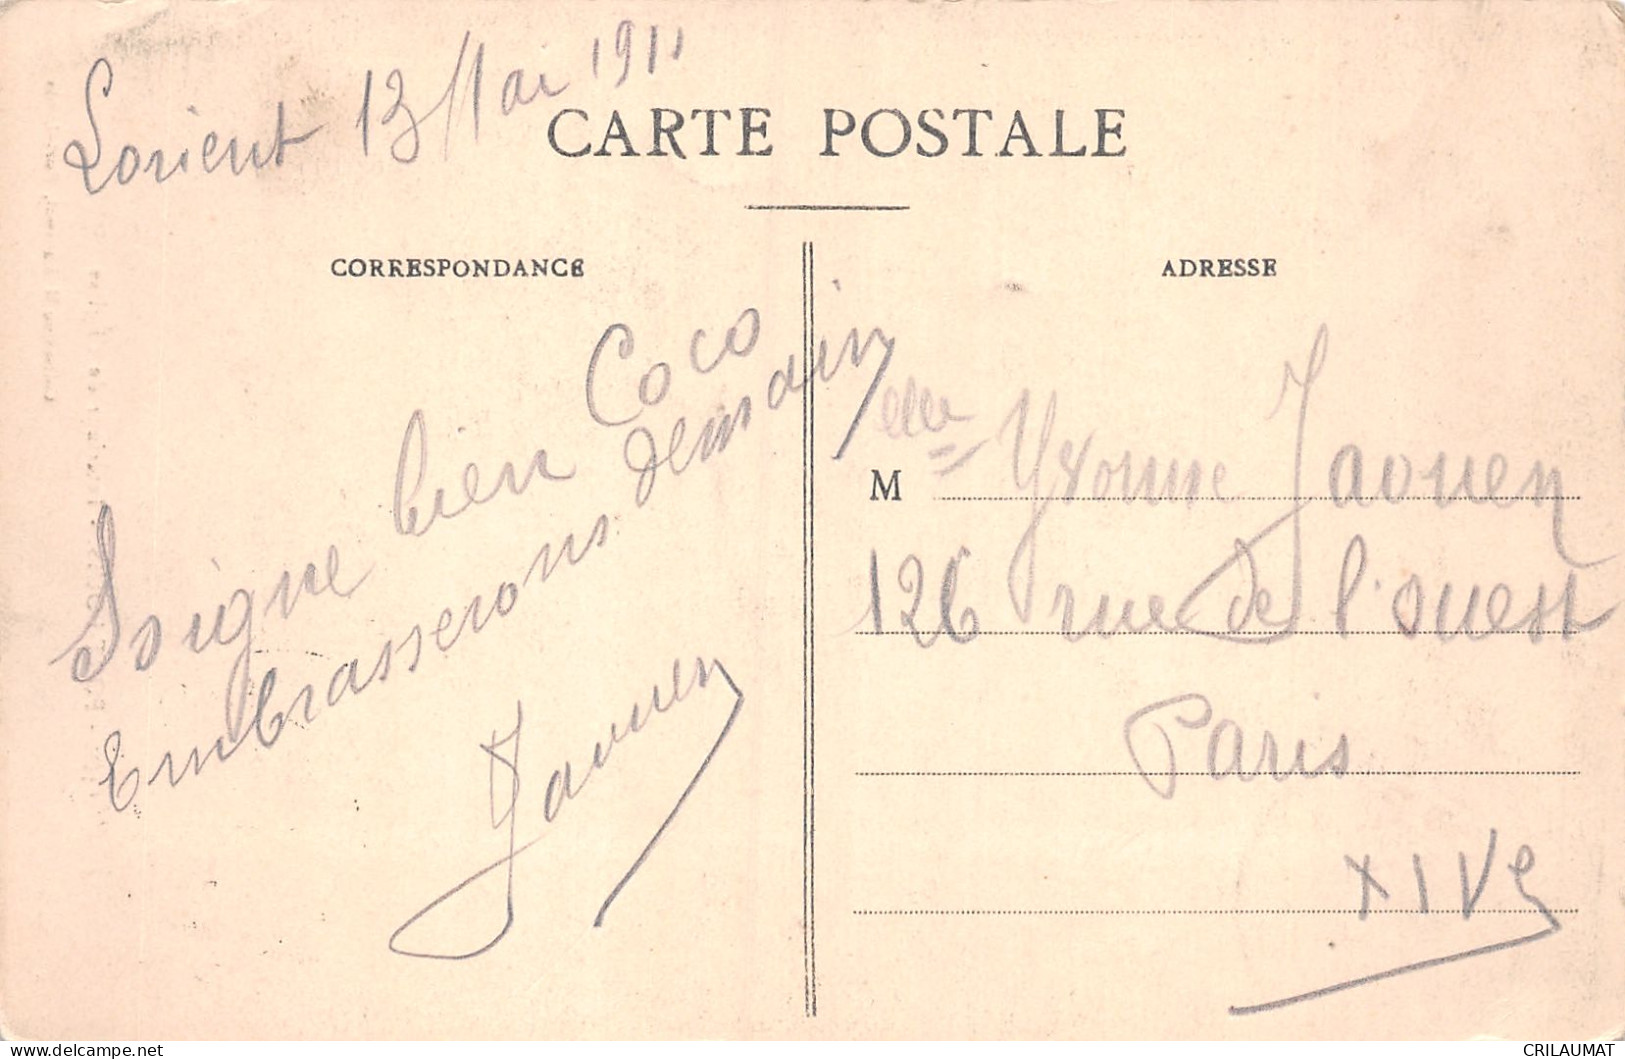 Lorient 13 Mai 1911
CARTE POSTALE
CORRESPONDANCE
Soigne bien Coco
Embrasserons demain
Jaouen
ADRESSE
M elle Yvonne Jaouen
126 rue de l'ouest
Paris
XIVe
CRILAUMAT